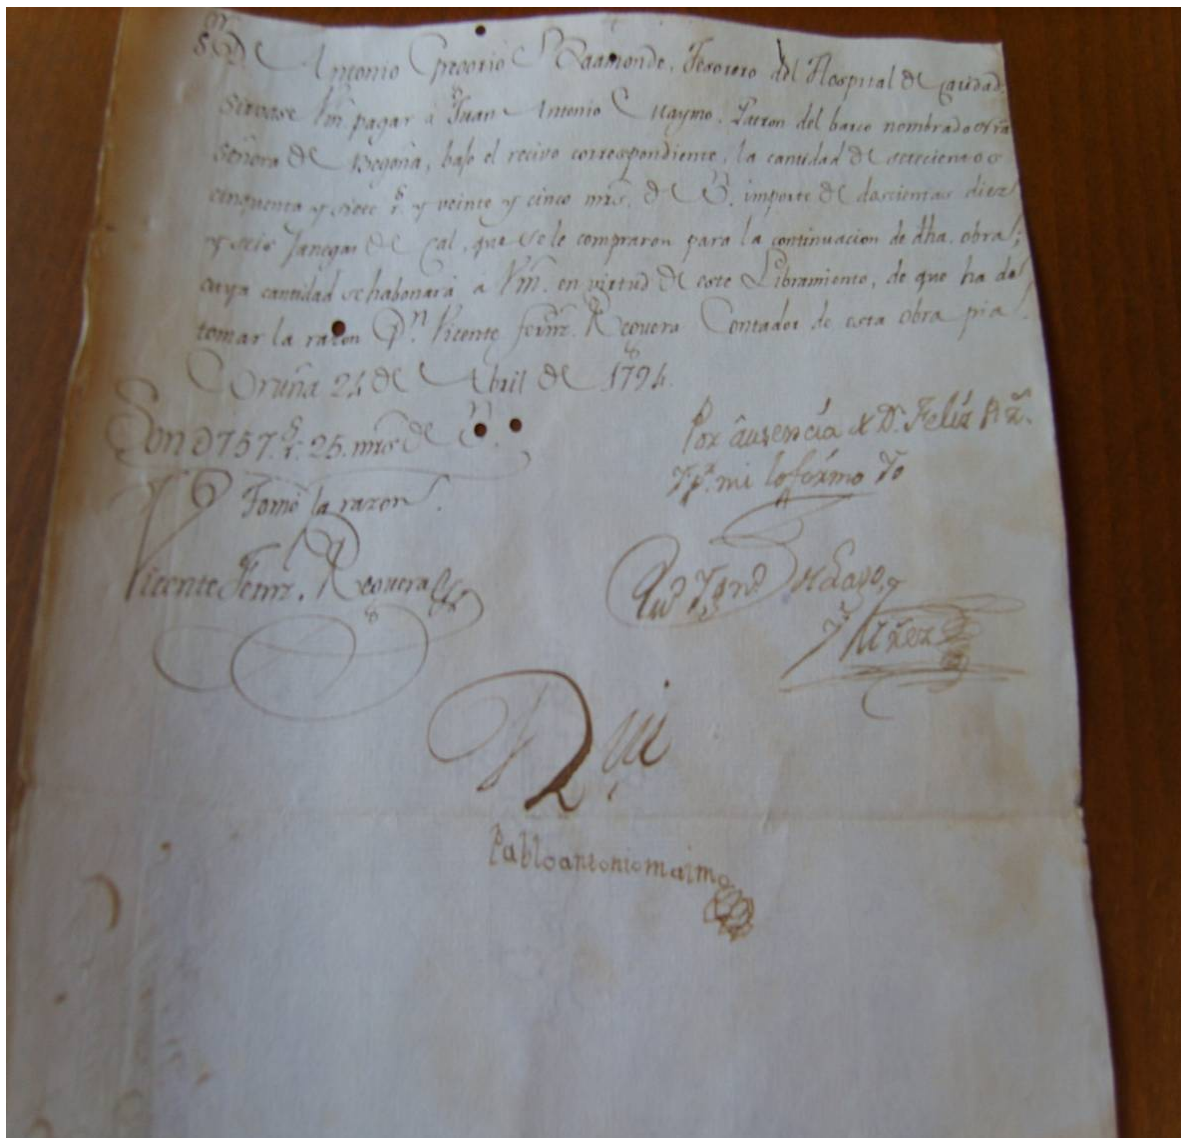 S.r D. Antonio Gregorio Baamonde, Tesorero del Hospital de Caridad
sirvase Vm. pagar á Juan Antonio Maymo, Patron del barco nombrado Nra
señora de Begoña, bajo el recivo correspondiente, la cantidad de setecientos
cinquenta y siete r.s y veinte y cinco mrs. de V.n importe de doscientas diez
y seis fanegas de Cal, que se le compraron para la continuacion de dha. obra;
cuya cantidad se habonará á Vm. en virtud de este Libramiento, de que ha de
tomar la razon D.n Vicente Fernz. Reguera Contador de esta obra pia.
Coruña 24 de Abril de 1794.
Son 757 r.s 25 mrs de V.n
Por ausencia de D.n Felix
Tomé la razon.
mi lo firmo Yo
Vicente Fernz. Reguera
Nuñez
Pabloantoniomaimo